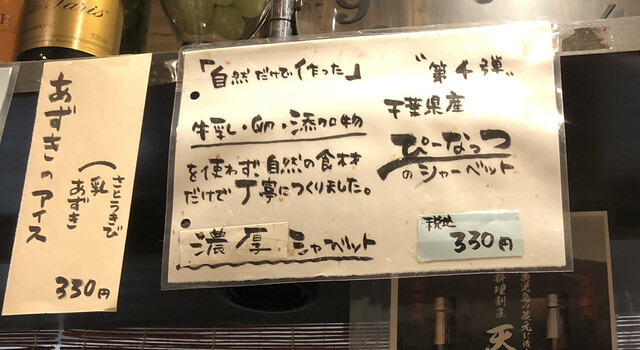 Paris
あずきのアイス
さとうきび
乳
あずき
330円
「自然だけで作った」
牛乳・卵・添加物
を使わず、自然の食材
だけで丁寧につくりました。
濃厚 シャーベット
"第4弾"
千葉県産
ぴーなっつ
のシャーベット
税込
330円
天